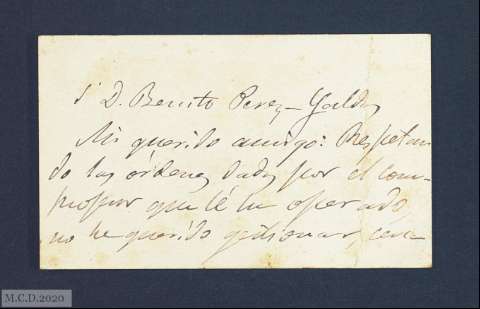 S. D. Benito Perez-Galdos
Mi querido amigo: Respetan
do las órdenes dadas por el com-
profesor que lé ha operado
no he querido gestionar, 
M.C.D.2020